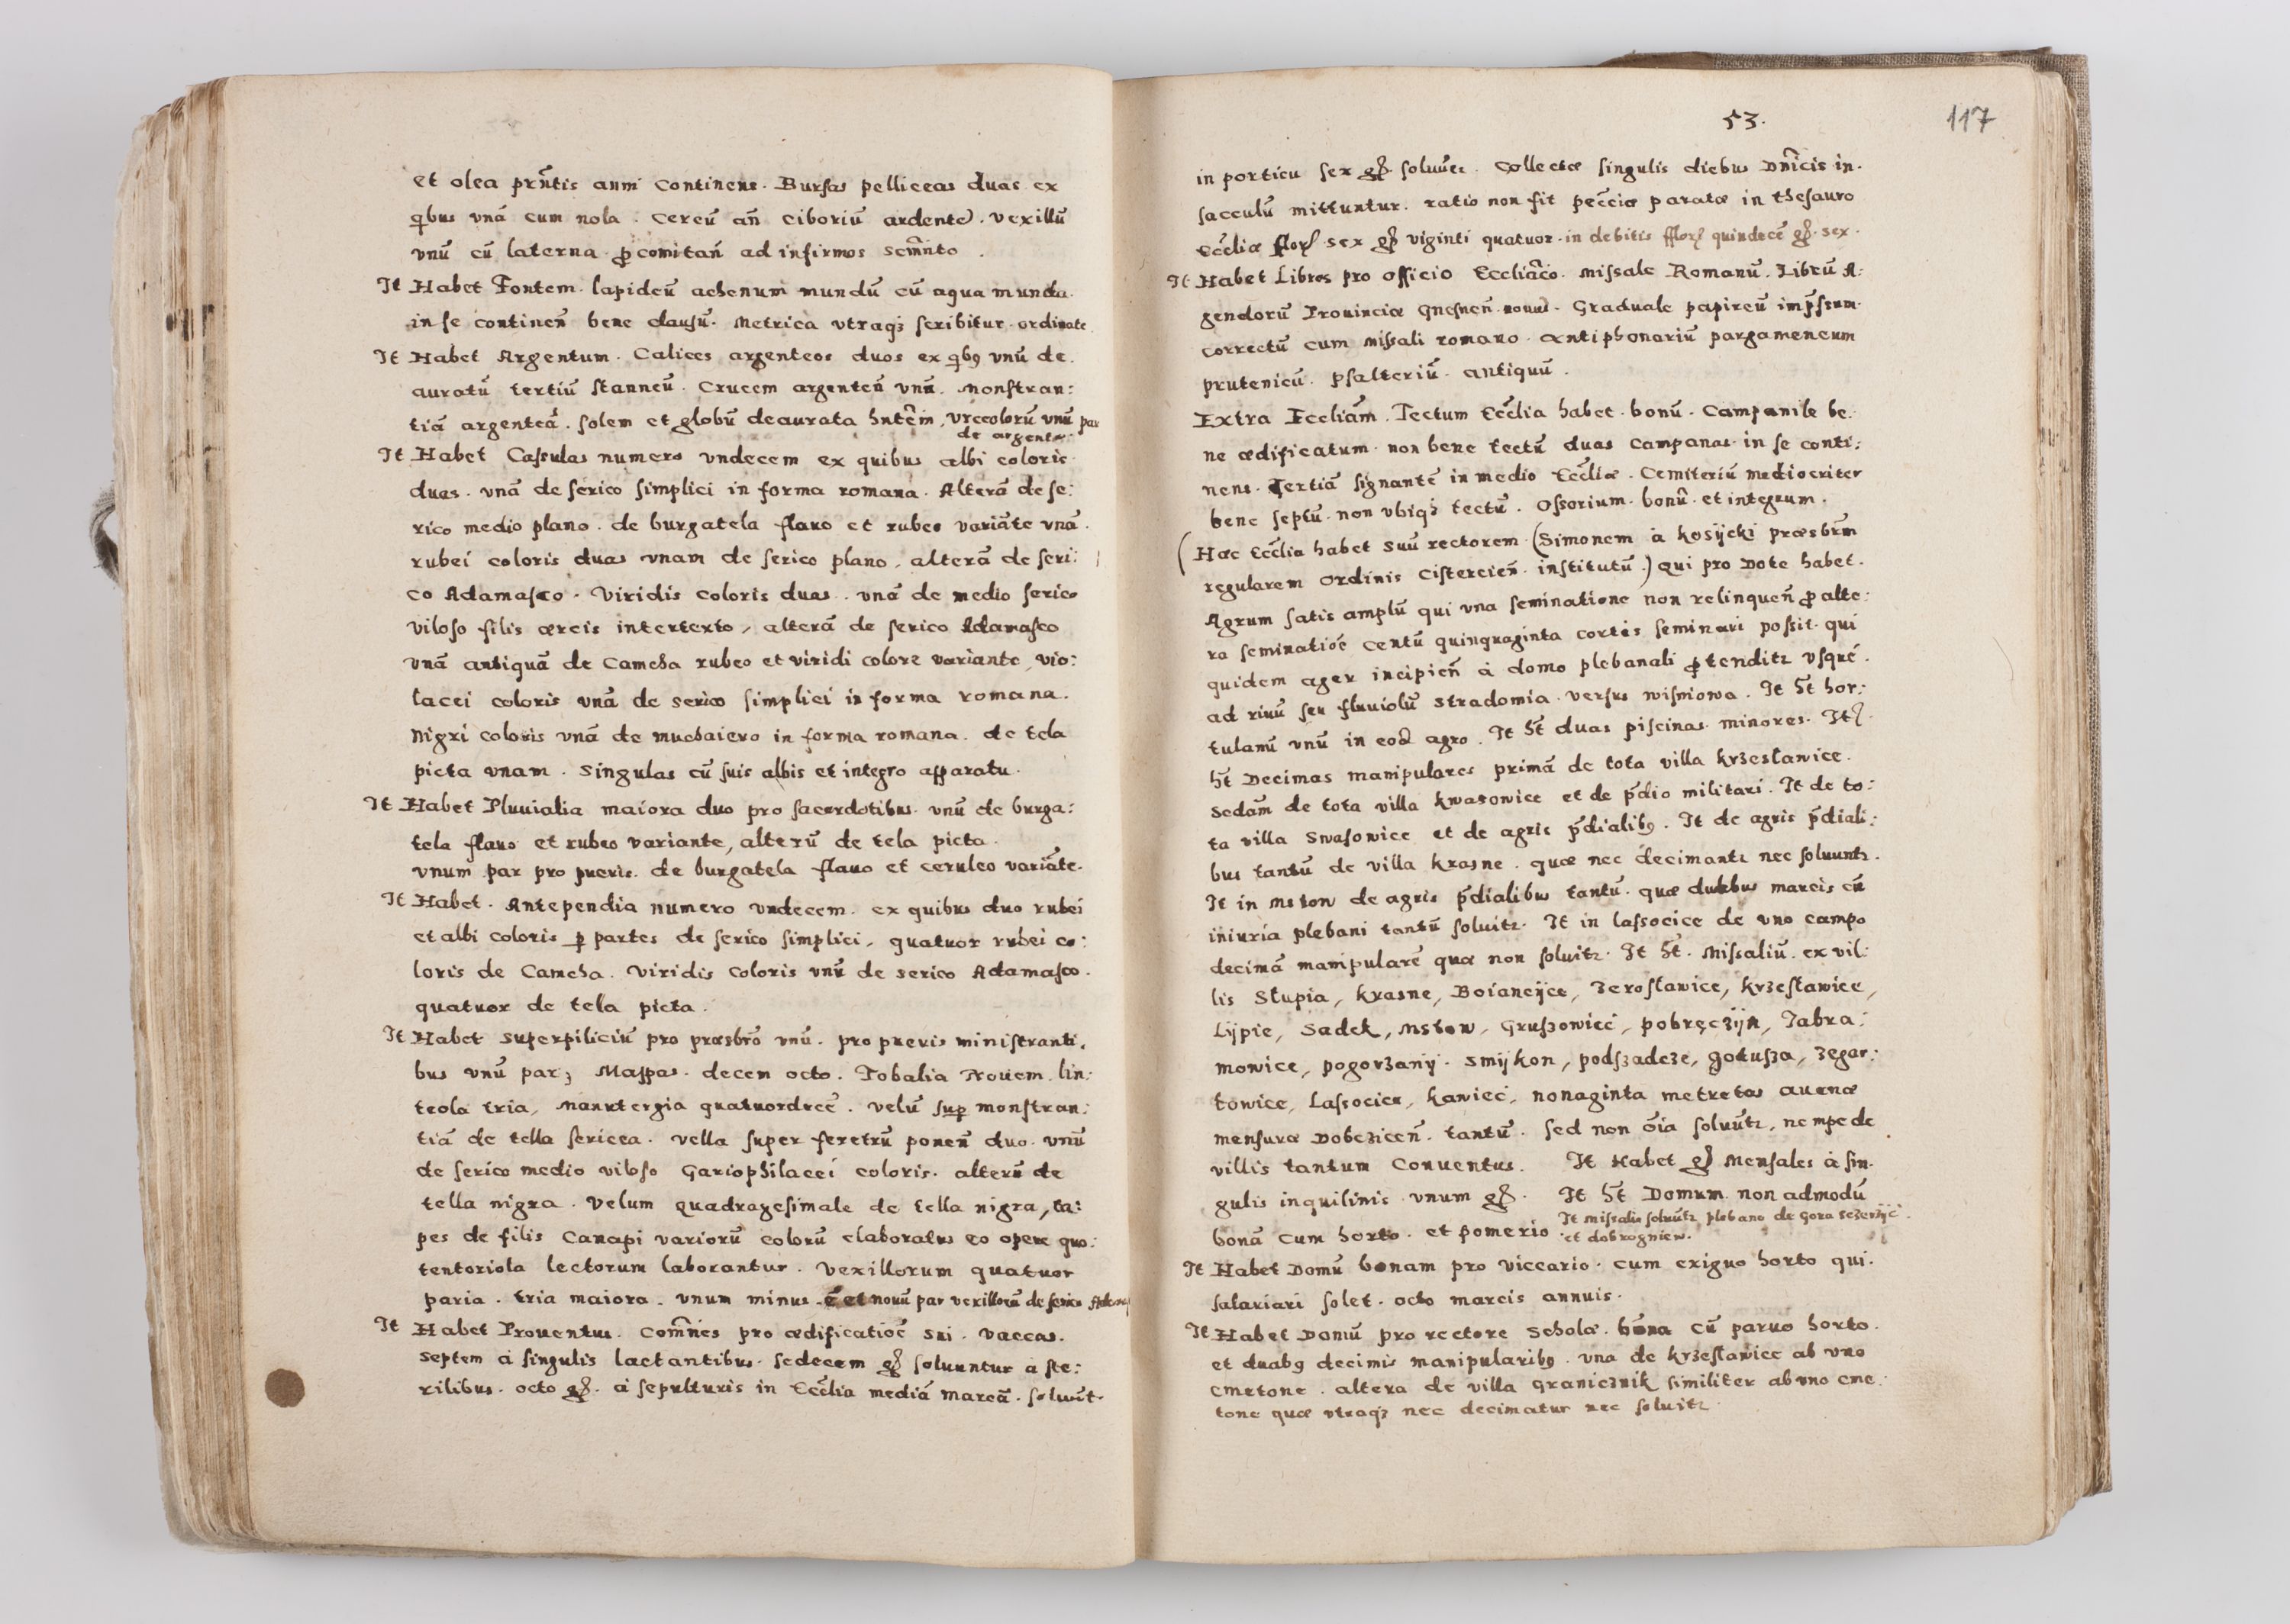 et olea prñtis anni continens. Bursas pelliceas duas ex
qibus vnã cum nola. Cereũ añ ciboriũ ardentẽ. vexillũ
vnũ cũ laterna ꝓ comitañ ad infirmos
It Habet Fontem lapideũ ahenum mundũ cũ aqua munda
in se contineñ bene clausũ. Metrica vtraqꝫ scribitur ordinate
It Habet Argentum. Calices argenteos duos ex qibꝯ vnũ de
auratũ tertiũ stanneũ. Crucem argenteũ vnũ. Monstran:
tiã argenteã. solem et globũ deaurata hñtem, vrceolorũ vnũ par
de argento
It Habet Casulas numero vndecem ex quibus albi coloris
duas. vnã de serico simplici in forma romana. Alterã de se:
rico medio plano. de burgatela flauo et rubeo variãte vnã.
rubei coloris duas vnam de serico plano, alterã de seri:
co Adamasco. Viridis coloris duas. vnã de medio serico
viloso filis æreis intertexto, alterã de serico Adamasco
vnã antiquã de Camcha rubeo et viridi colore variante, vio:
lacei coloris vnã de serico simplici in forma romana.
Nigri coloris vnã de muchaiero in forma romana. de tela
picta vnam. Singulas cũ suis albis et integro apparatu.
It Habet Pluuialia maiora duo pro sacerdotibus. vnũ de burga:
tela flauo et rubeo variante, alterũ de tela picta.
vnum par pro pueris. de burgatela flauo et ceruleo variãte.
It Habet. Antependia numero vndecem. ex quibus duo rubei
et albi coloris ꝑ partes de serico simplici, quatuor rubei co:
loris de Camcha. Viridis coloris vnũ de serico Adamasco.
quatuor de tela picta.
It Habet superpiliciũ pro præsbrõ vnũ. pro pueris ministranti,
bus vnũ par, Mappas. decem octo. Tobalia Nouem. lin:
teola tria, manutergia quatuordecẽ. velũ suꝑ monstran:
tiã de tella sericea. vella super feretrũ poneñ duo. vnũ
de serico medio viloso Gariophilacei coloris. alterũ de
tella nigra. Velum quadragesimale de tella nigra, ta:
pes de filis Canapi variorũ colorũ elaboratus eo opere quo:
tentoriola lectorum laborantur. Vexillorum quatuor
paria. tria maiora. vnum minus. et nouũ par vexillorũ de serico
It Habet Prouentus. Com̃nes pro ædificatiõe sui. vaccas.
septem à singulis lactantibus. sedecem gꝝ soluuntur à ste:
rilibus. octo gꝝ. à sepulturis in Ecc̃lia mediã marcã. soluũt.
53.
117
in porticu sex gꝝ soluũtꝛ. Collectæ singulis diebus Dñicis in.
sacculũ mittuntur. ratio non fit pecc̃iæ paratæ in thesauro
Ecc̃liæ florꝭ sex gꝝ viginti quatuor. in debitis fflorꝭ quindecẽ gꝝ. sex.
It Habet Libros pro officio Eccliãco. Missale Romanũ. Librũ A:
gendorũ Prouinciæ Gnesneñ. nouus. Graduale papireũ imp̃ssum.
correctũ cum missali romano. antiphonariũ pargameneum
prutenicũ. Psalteriũ antiquũ.
Extra Eccliãm. Tectum Ecc̃lia habet. bonũ. Campanile be.
ne ædificatum. non bene tectũ duas campanas in se conti:
nens. Tertiã signantẽ in medio Ecc̃liæ. Cemiteriũ mediocriter
bene septũ. non vbiqꝫ tectũ. Ossorium. bonũ. et integrum.
(Hæc Ecc̃lia habet suũ rectorem (Simonem à Kosÿcki præsbrm̃
regularem Ordinis Cistercieñ. institutũ.) qui pro Dote habet.
Agrum satis amplũ qui vna seminatione non relinqueñ ꝓ alte:
ra seminatiõe centũ quinquaginta cortis seminari possit. qui
quidem ager incipieñ à domo plebanali ꝓtenditꝛ vsque.
ad riuũ seu fluuiolũ Stradomia. versus wisniowa. It ht̃ hor:
tulanũ vnũ in eod agro. It ht̃ duas piscinas minores. Itꝭ
ht̃ Decimas manipulares primã de tota villa krzesławice.
Sedam̃ de tota villa kwasowice et de p̃dio militari. It de to:
ta villa Swasowice et de agris p̃dialibꝯ. It de agris p̃diali:
bus tantũ de villa krasne. quæ nec decimantꝛ nec soluuntꝛ.
It in Mstow de agris p̃dialibus tantũ. quæ duabus marcis cũ
iniuria plebani tantũ soluitꝛ. It in lassocice de vno campo
decimã manipularẽ quæ non soluitꝛ. It ht̃. Missaliũ. ex vil:
lis Słupia, krasne, Boiancÿce, Zerosławice, krzesławice,
Lÿpie, Sadek, Mstow, Gruszowiec, pobręczÿn, Jabra:
mowice, pogorzanÿ. Smÿkon, podszadcze, gołusza, zegar:
towice, Lassocice, kawiec, nonaginta metretas auenæ
mensuræ Dobczicen̄. tantũ. sed non õia soluũtꝛ, nempe de
villis tantum Conuentus. It Habet gꝝ Mensales à sin.
gulis inquilinis vnum gꝝ. It ht̃ Domum non admodũ
bonã cum horto. et pomerio. It missalia soluũtꝛ plebano de Gora
et dobrogniew.
It Habet Domũ bonam pro viccario. cum exiguo horto qui.
salariari solet. octo marcis annuis.
It Habet Domũ pro rectore Scholæ. bona cũ paruo horto.
et duabꝯ decimis manipularibꝯ. vna de krzesławice ab vno
cmetone. altera de villa granicznik similiter ab vno cme:
tone quæ vtraqꝫ nec decimatur nec soluitꝛ